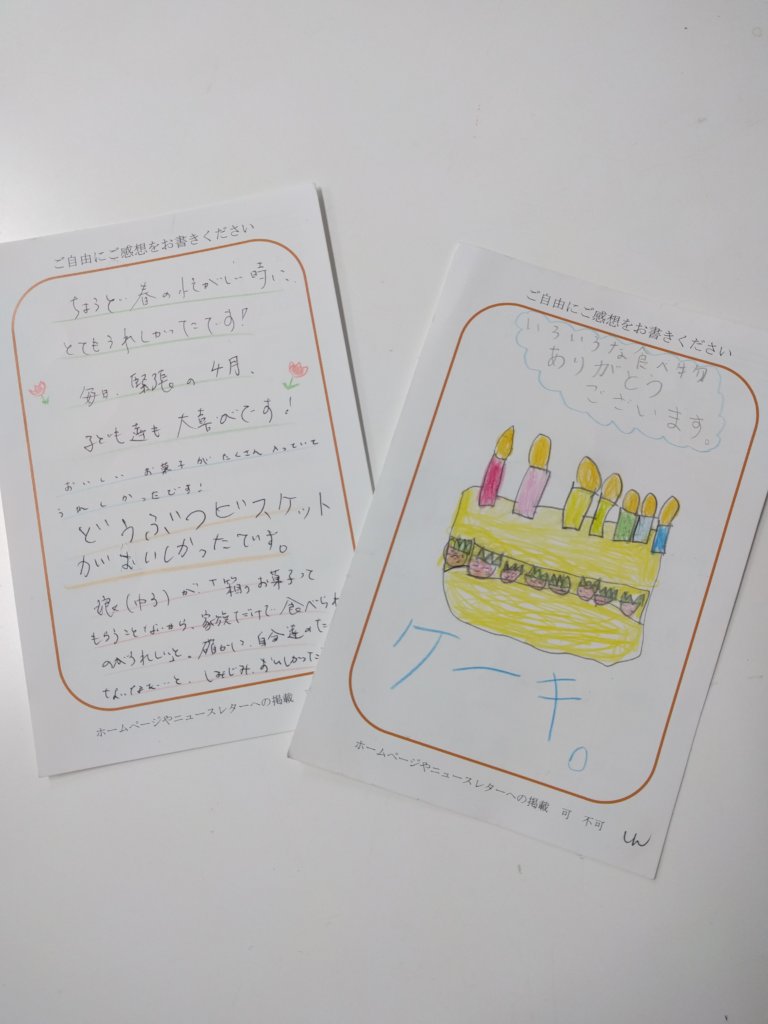 ご自由にご感想をお書きください
ちょうど春の忙がしい時に、
とてもうれしかったです!
毎日、緊張の4月、
子ども達も大喜びです!
おいしいお菓子がたくさん入っていて
うれしかったです!
どうぶつビスケット
がおいしかったです。
娘(ゆう)が、「箱のお菓子って
もらうことないから、家族だけで食べられ
のがうれしい」と。確かに、自分達のた
しみじみ、おいしかった
ホームページやニュースレターへの掲載
ご自由にご感想をお書きください
いろいろな食べ物
ありがとう
ございます。
ケーキ。
ホームページやニュースレターへの掲載 可 不可
しん